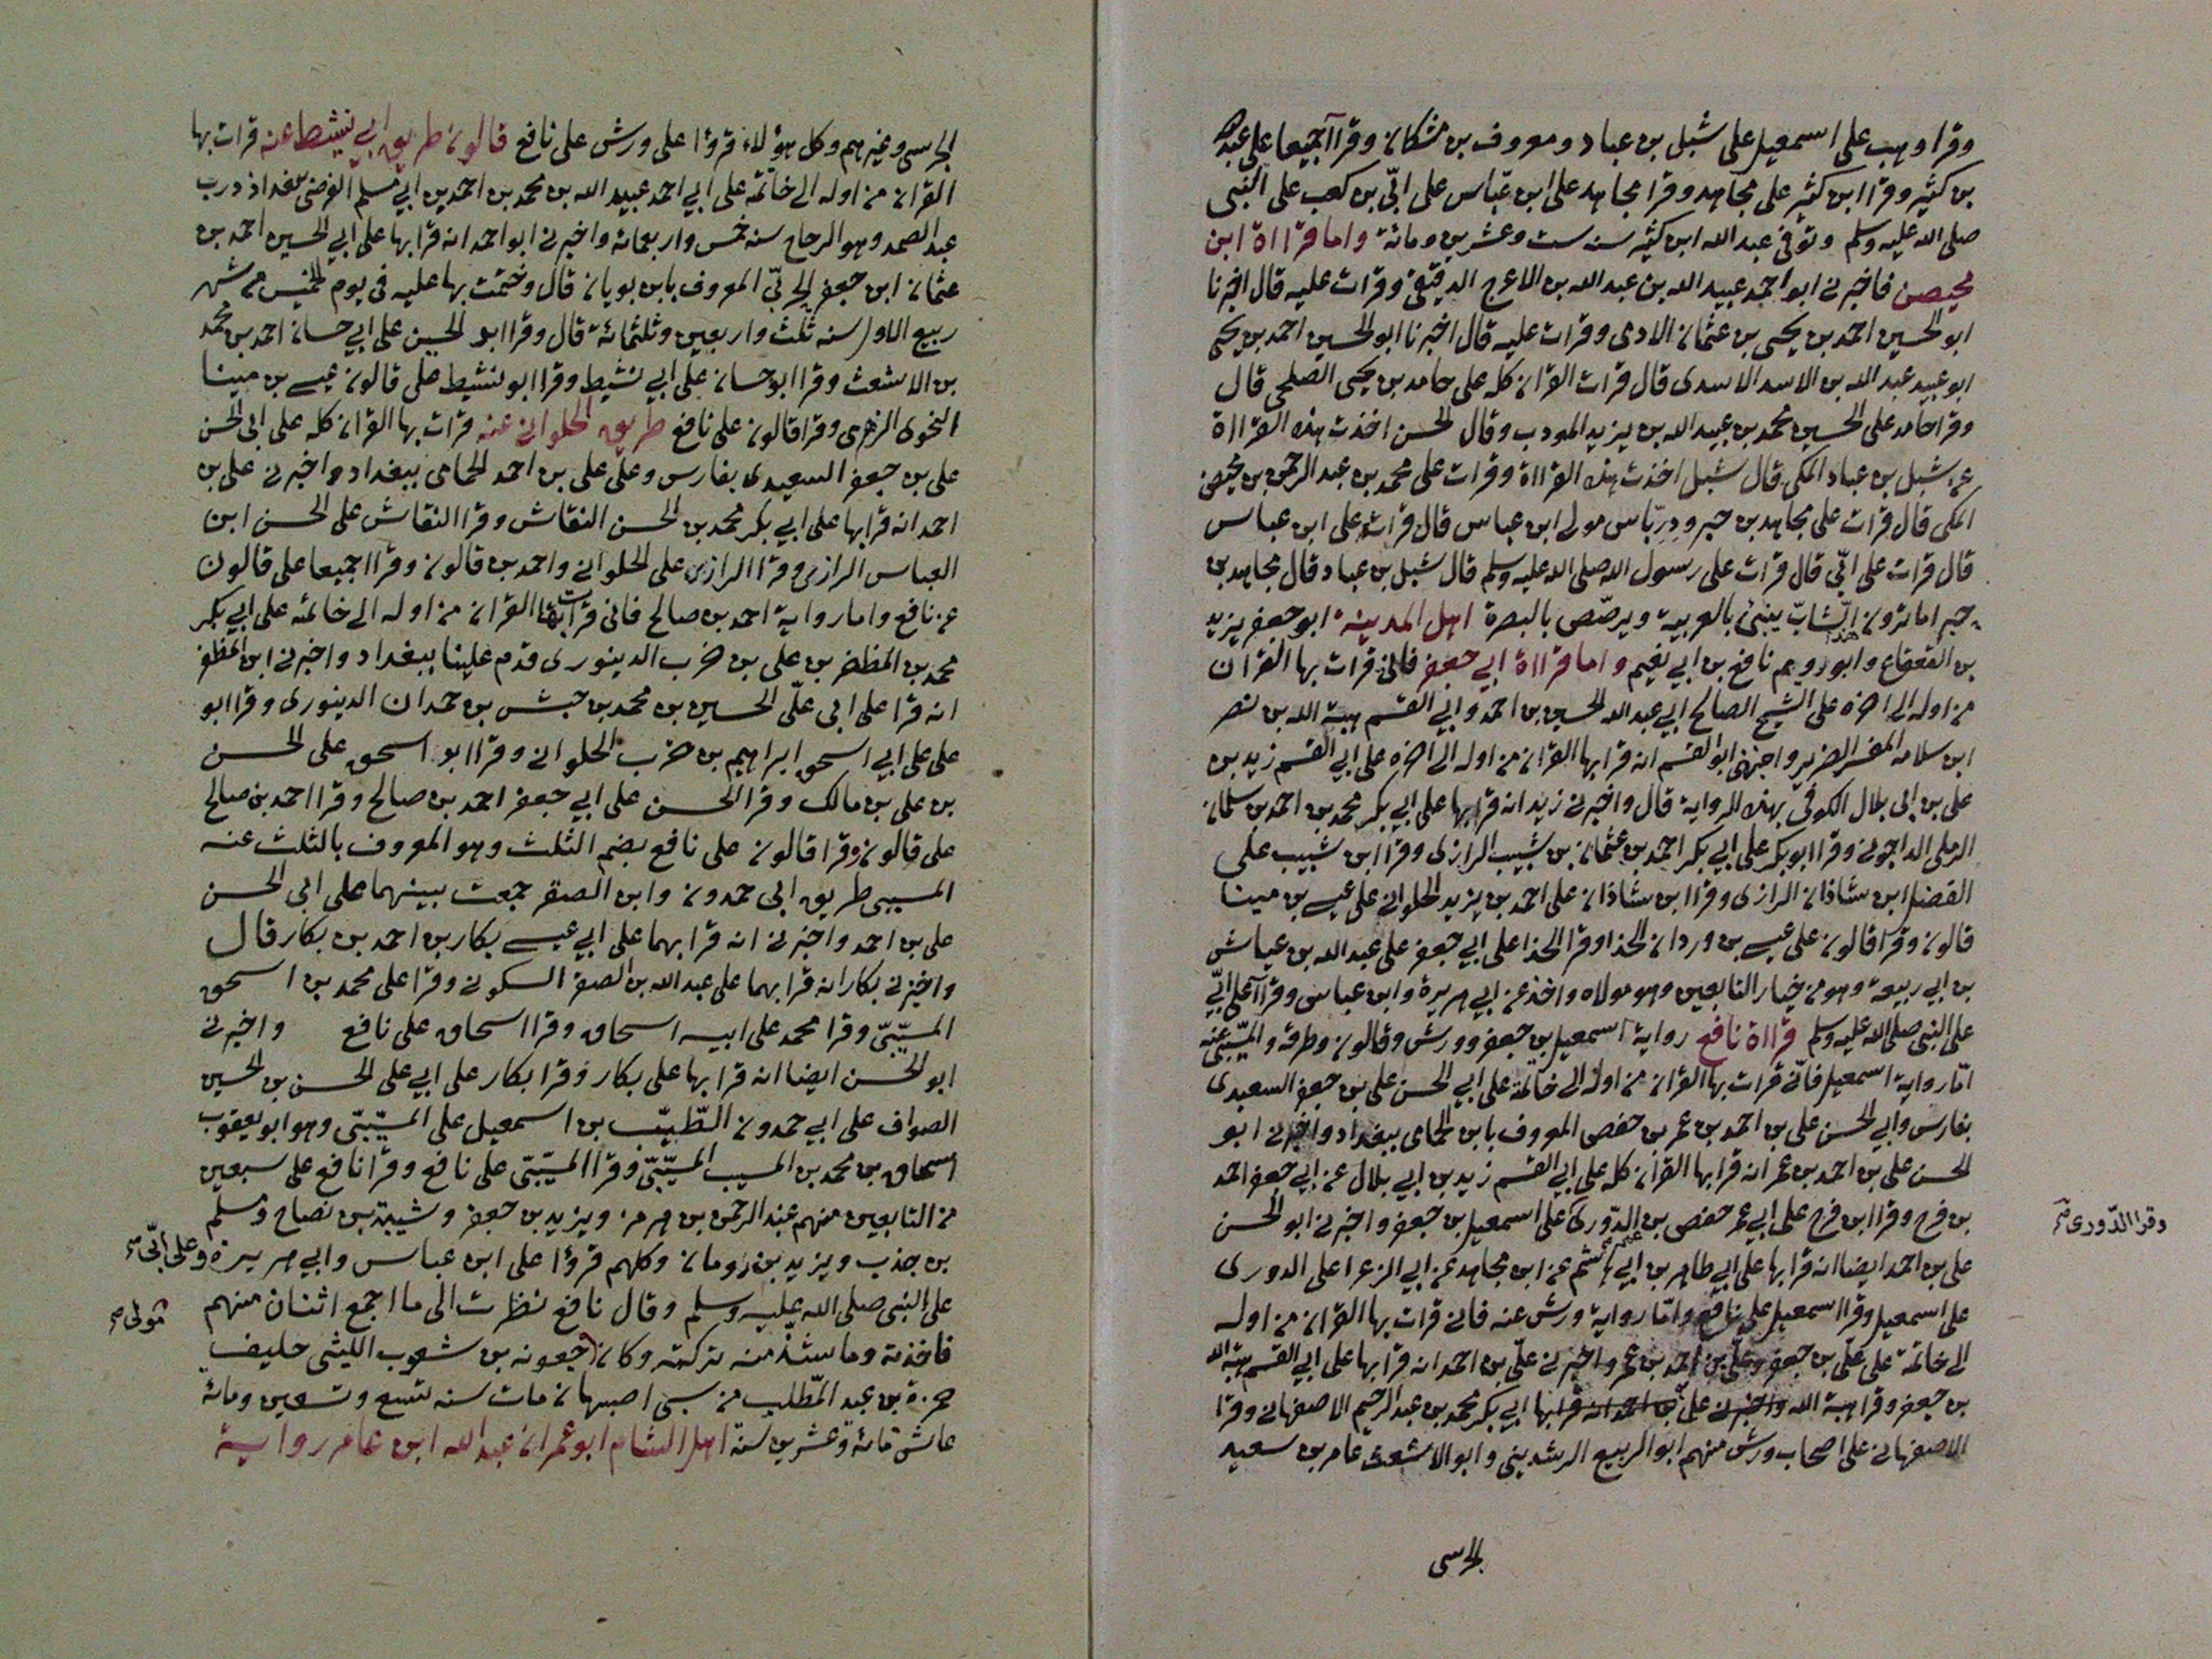 وقرا وهب على اسمعيل على شبل بن عباد ومعروف بن مشكان وقراآ جميعا على عبد الله
بن كثير وقرا ابن كثير على مجاهد وقرا مجاهد على ابن عباس على ابّي بن كعب على النبى
صلى الله عليه وسلم وتوفي عبد الله ابن كثير سنه ست وعشرين ومائة واما قرااة ابن
محيصن فاخبرني ابو احمد عبيد الله بن عبد الله بن الاعرج الدقيقي وقرات عليه قال اخبرنا
ابو الحسين احمد بن يحيى بن عثمان الادمى وقرات عليه قال اخبرنا ابو الحسين احمد بن يحيى
ابو عبيد عبد الله بن الاسد الاسدى قال قرات القران كله على حامد بن يحيى الصلحى قال
وقرا حامد على الحسين محمد بن عبيد الله بن يزيد المودب وقال الحسن اخذت هذه القرااة
عن شبل بن عباد المكى قال شبل اخذت هذه القرااة وقرات على محمد بن عبد الرحمن بن محيصن
المكى قال قرات على مجاهد بن جبر ودرباس مولى ابن عباس قال قرات على ابن عباس
قال قرات على ابّي قال قرات على رسول الله صلى الله عليه وسلم قال شبل بن عباد قال مجاهد بن
جبر اما ترون هذا الشابّ يبنى بالعربية ويرصّص بالبصرة اهل المدينة ابو جعفر يزيد
بن القعقاع وابو رويم نافع بن ابي نعيم واما قرااة ابي جعفر فانى قرات بها القران
من اوله الى اخره على الشيخ الصالح ابي عبد الله الحسين بن احمد وابي القسم هبة الله بن نصر
ابن سلامه المفسر الضرير واخبرني ابو القسم انه قرا بها القران من اوله الى اخره على ابي القسم زيد بن
على بن ابى بلال الكوفي بهذه الرواية قال واخبرني زيد انه قرا بها على ابي بكر محمد بن احمد بن سلمان
الرملى الداجوني وقرا ابو بكر على ابي بكر احمد بن عثمان بن شبيب الرازى وقرا ابن شبيب على
الفضل ابن شاذان الرازى وقرا ابن شاذان على احمد بن يزيد الحلواني على عيسى بن مينا
قالون وقرا قالون على عيسى بن وردان الحذا وقرا الحذا على ابي جعفر على عبد الله بن عياش
بن ابي ربيعة وهو من خيار التابعين وهو مولاه واخذ عن ابي هريرة وابن عباس وقراآ على ابّي
على النبى صلى الله عليه وسلم قرااة نافع رواية اسمعيل بن جعفر وورش وقالون وطرقه والمسيّبى عنه
امّا رواية اسمعيل فانّي قرات بها القران من اوله الى خاتمة على ابي الحسن على بن جعفر السعيدى
بفارس وابي الحسن على بن احمد بن عمر بن حفص المعروف بابن الحمامى ببغداد واخبرني ابو
الحسن على بن احمد بن عمر انه قرا بها القران كله على ابي القسم زيد بن ابي بلال عن ابي جعفر احمد
بن فرح وقرا ابن فرح على ابي عمر حفص بن الدّورى على اسمعيل بن جعفر واخبرني ابو الحسن
وقرا الدّورى
على بن احمد ايضا انه قرا بها على ابي طاهر بن ابي هاشم عن ابن مجاهد عن ابي الزعرا على الدورى
على اسمعيل وقرا اسمعيل على نافع وامّا رواية ورش عنه فاني قرات بها القران من اوله
الى خاتمة على علي بن جعفر وعلي بن احمد بن عمر واخبرني علّي بن احمد انه قرا بها على ابي القسم هبة الله
بن جعفر وقرا هبة الله واخبرني على بن احمد انه قرا بها ابي بكر محمد بن عبد الرحيم الاصفهاني وقرا
الاصفهاني على اصحاب ورش منهم ابو الربيع الرشديني وابو الاشعث عامر بن سعيد
الحرسى
الحرسى وغيرهم وكل هؤلاء قرؤا على ورش على نافع قالون طريق ابي نشيط عنه قرات بها
القران من اوله الى خاتمه على ابي احمد عبيد الله بن محمد بن احمد بن ابي مسلم الفرضى ببغداذ درب
عبد الصمد وهو الرحاح سنه خمس واربعمائه واخبرني ابو احمد انه قرا بها على ابي الحسين احمد بن
عثمان ابن جعفر الحربّي المعروف بابن بويان قال وختمت بها عليه في يوم الخميس من شهر
ربيع الاول سنه ثلث واربعين وثلثمائة قال وقرا ابو الحسين على ابي حسان احمد بن محمد
بن الاشعث وقرا ابو حسان على ابي نشيط وقرا ابو نشيط على قالون عيسى بن مينا
النحوى الزهرى وقرا قالون على نافع طريق الحلواني عنه قرات بها القران كله على ابى الحسن
على بن جعفر السعيدى بفارس وعلى على بن احمد الحمامى ببغداد واخبرني على بن
احمد انه قرا بها على ابي بكر محمد بن الحسن النقاش وقرا النقاش على الحسن ابن
العباس الرازى وقرا الرازى على الحلواني واحمد بن قالون وقراا جميعا على قالون
عن نافع واما رواية احمد بن صالح فانى قرات بها القران من اوله الى خاتمه على ابي بكر
محمد بن المظفر بن على بن حرب الدينورى قدم علينا ببغداد واخبرني ابن المظفر
انه قرا على ابى علّى الحسين بن محمد بن حبش بن حمدان الدينورى وقرا ابو
على على ابي اسحق ابراهيم بن حرب الحلواني وقرا ابو اسحق على الحسن
بن على بن مالك وقرا الحسن على ابي جعفر احمد بن صالح وقرا احمد بن صالح
على قالون وقرا قالون على نافع بضم الثلث وهو المعروف بالثلث عنه
المسيبى طريق ابى حمدون وابن الصقر جمعت بينهما على ابى الحسن
على بن احمد واخبرني انه قرا بهما على ابي عيسى بكار بن احمد بن بكار قال
واخبرني بكار انه قرا بهما على عبد الله بن الصقر السكوني وقرا على محمد بن اسحق
المسيّبّى وقرا محمد على ابيه اسحاق وقرا اسحاق على نافع واخبرني
ابو الحسن ايضا انه قرا بها على بكار وقرا بكار على ابي على الحسن بن الحسين
الصواف على ابي حمدون الطّيّب بن اسمعيل على المسيّبّى وهو ابو يعقوب
اسحاق بن محمد بن المسيب المسيّبّى وقرا المسيّبّى على نافع وقرا نافع على سبعين
من التابعين منهم عبد الرحمن بن هرمز ويزيد بن جعفر وشيبة بن نصاح ومسلم
بن جندب ويزيد بن رومان وكلهم قرؤا على ابن عباس وابي هريرة وعلى ابّى
على النبى صلى الله عليه وسلم وقال نافع نظرت الى ما اجمع اثنان منهم
فاخذته وما شذ منه تركته وكان جعونه بن شعوب الليثى حليف
مولى
حمزة بن عبد المّطلب من سبى اصبهان مات سنه تسع وتسعين ومائة
عاش مائة وعشرين سنة اهل الشام ابو عمران عبد الله ابن عامر رواية